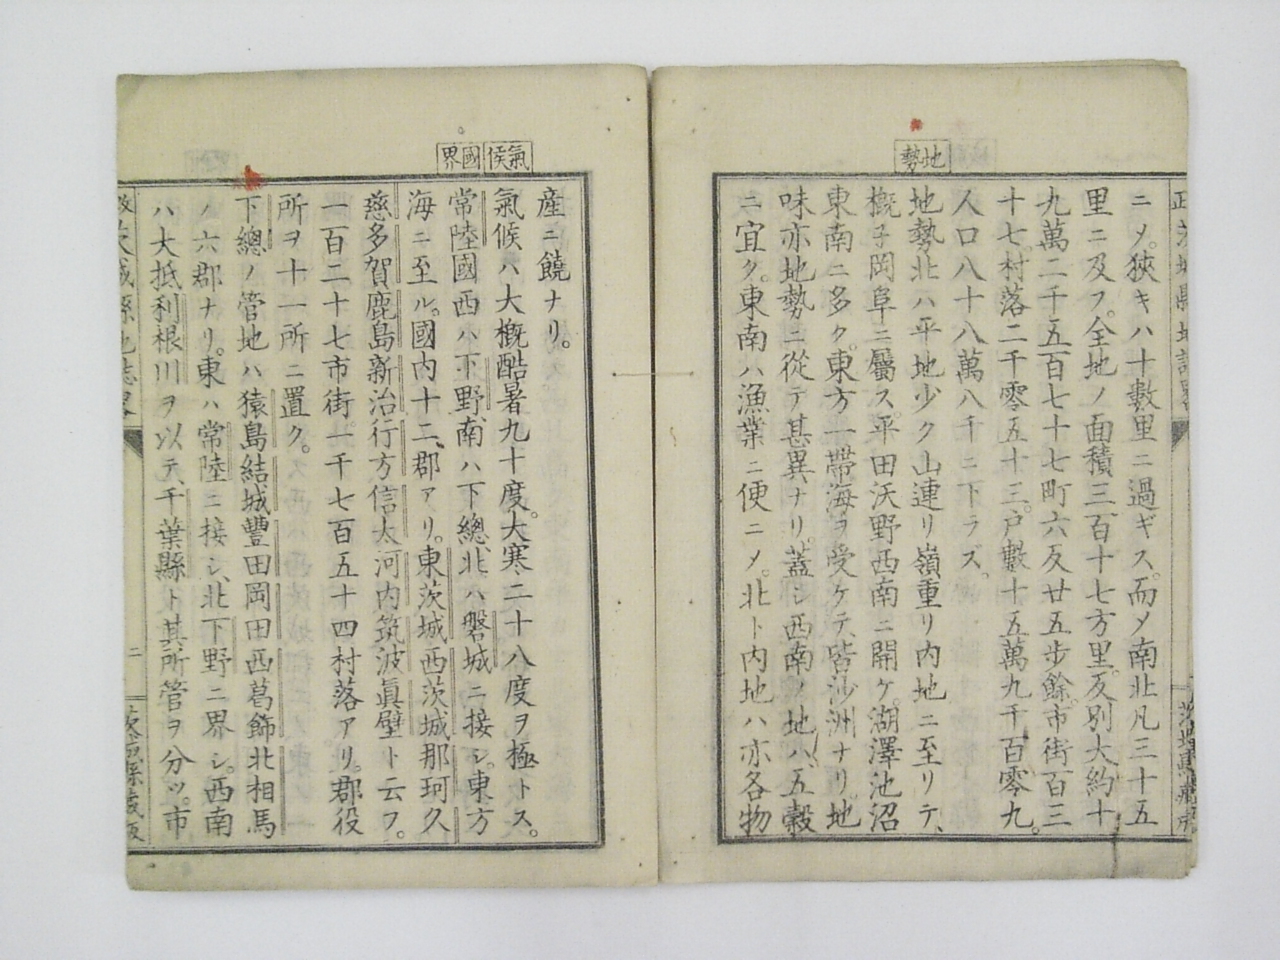 地勢
ニ〆。狹キハ十數里ニ過ギス。而〆南北凡三十五
里ニ及フ。全地ノ面積三百十七方里。反別大約十
九萬二千五百七十七町六反廿五步餘。市街百三
十七。村落二千零五十三。戶數十五萬九千百零九。
人口八十八萬八千ニ下ラズ。
地勢北ハ平地少ク山連リ嶺重リ内地ニ至リテ、
概子岡阜ニ屬ス。平田沃野西南ニ開ケ。湖澤池沼
東南ニ多ク。東方一帶海ヲ受ケテ、皆沙洲ナリ。地
味亦地勢ニ從テ甚異ナリ。蓋シ西南ノ地ハ、五穀
ニ宜ク。東南ハ漁業ニ便ニ〆。北ト内地ハ亦各物
氣候
國界
産ニ饒ナリ。
氣候ハ大概酷暑九十度。大寒二十八度ヲ極トス。
常陸國西ハ下野南ハ下總、北ハ磐城ニ接シ。東方
海ニ至ル。國内十二、郡アリ。東茨城西茨城那珂久
慈多賀鹿島新治行方信太河内筑波眞壁ト云フ。
一百二十七市街。一千七百五十四村落アリ。郡役
所ヲ十一所ニ置ク。
下總ノ管地ハ猿島結城豐田岡田西葛飾北相馬
ノ六郡ナリ。東ハ常陸ニ接シ、北下野ニ界シ。西南
ハ大抵利根川ヲ以テ、千葉縣ト其所管ヲ分ツ。市
茨城縣地誌略
二
茨城縣藏版